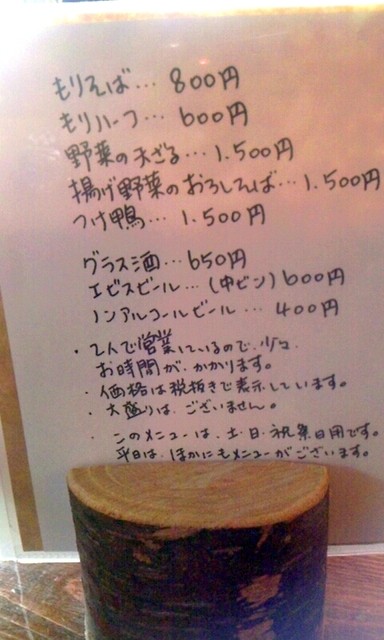 もりそば… 800円
もりハーフ… 600円
野菜の天ざる…1.500円
揚げ野菜のおろしそば…1.500円
つけ鴨… 1.500円
グラス酒…650円
エビスビール…(中ビン)600円
ノンアルコールビール… 400円
・2人で営業しているので、少々
お時間が、かかります。
・価格は税抜きで表示しています。
・大盛りは、ございません。
・このメニューは、土・日・祝祭日用です。
平日は、ほかにもメニューがございます。